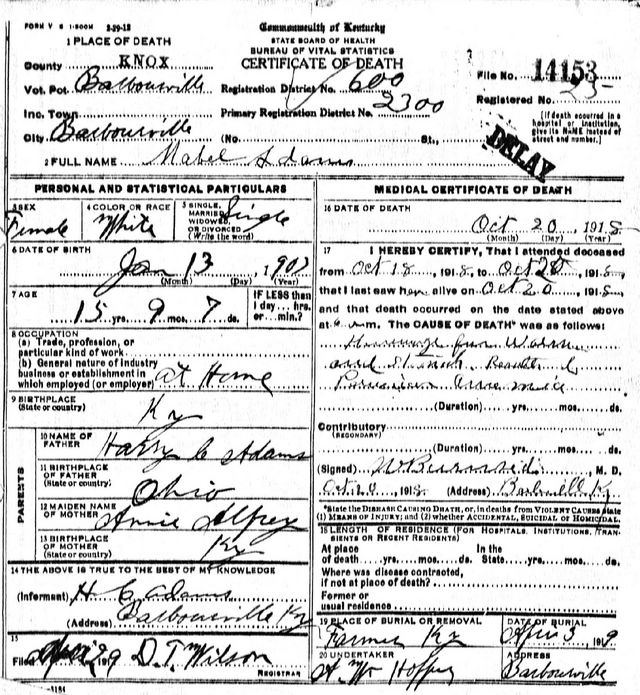 FORM V S 1-500M 3-29-18
Commonwealth of Kentucky
STATE BOARD OF HEALTH
BUREAU OF VITAL STATISTICS
CERTIFICATE OF DEATH
1 PLACE OF DEATH
County KNOX
Vot. Pct. Barbourville
Registration District No. 600
File No. 14153
Inc. Town
Primary Registration District No. 2300
Registered No.
City Barbourville (No. St.,
[If death occurred in a hospital or institution, give its NAME instead of street and number.]
DELAY
2 FULL NAME Mabel Adams
PERSONAL AND STATISTICAL PARTICULARS
3 SEX Female
4 COLOR OR RACE White
5 SINGLE, MARRIED, WIDOWED, OR DIVORCED (Write the word) Single
6 DATE OF BIRTH
Jan 13, 1903
(Month) (Day) (Year)
7 AGE
15 yrs. 9 mos. 7 ds.
IF LESS than 1 day... hrs. or... min.?
8 OCCUPATION
(a) Trade, profession, or particular kind of work
(b) General nature of industry business or establishment in which employed (or employer) at Home
9 BIRTHPLACE
(State or country) Ky
PARENTS
10 NAME OF FATHER Harry C Adams
11 BIRTHPLACE OF FATHER (State or country) Ohio
12 MAIDEN NAME OF MOTHER Annie Alfrey
13 BIRTHPLACE OF MOTHER (State or country) Ky
14 THE ABOVE IS TRUE TO THE BEST OF MY KNOWLEDGE
(Informant) H C Adams
(Address) Barbourville Ky
15
Filed 29 D. T. Wilson
REGISTRAR
MEDICAL CERTIFICATE OF DEATH
16 DATE OF DEATH
Oct 20, 1918
(Month) (Day) (Year)
17 I HEREBY CERTIFY, That I attended deceased
from Oct 18, 1918, to Oct 20, 1918,
that I last saw her alive on Oct 20, 1918
and that death occurred on the date stated above
at m. The CAUSE OF DEATH* was as follows:
and
(Duration) yrs. mos. ds.
Contributory
(SECONDARY)
(Duration) yrs. mos. ds.
(Signed) M. D.
Oct 20 1918 (Address) Ky
*State the DISEASE CAUSING DEATH, or, in deaths from VIOLENT CAUSES state (1) MEANS OF INJURY; and (2) whether ACCIDENTAL, SUICIDAL or HOMICIDAL.
18 LENGTH OF RESIDENCE (FOR HOSPITALS, INSTITUTIONS, TRANSIENTS OR RECENT RESIDENTS)
At place of death yrs. mos. ds. In the State yrs. mos. ds.
Where was disease contracted, if not at place of death?
Former or usual residence
19 PLACE OF BURIAL OR REMOVAL
DATE OF BURIAL
Ky
20 UNDERTAKER
ADDRESS
Barbourville